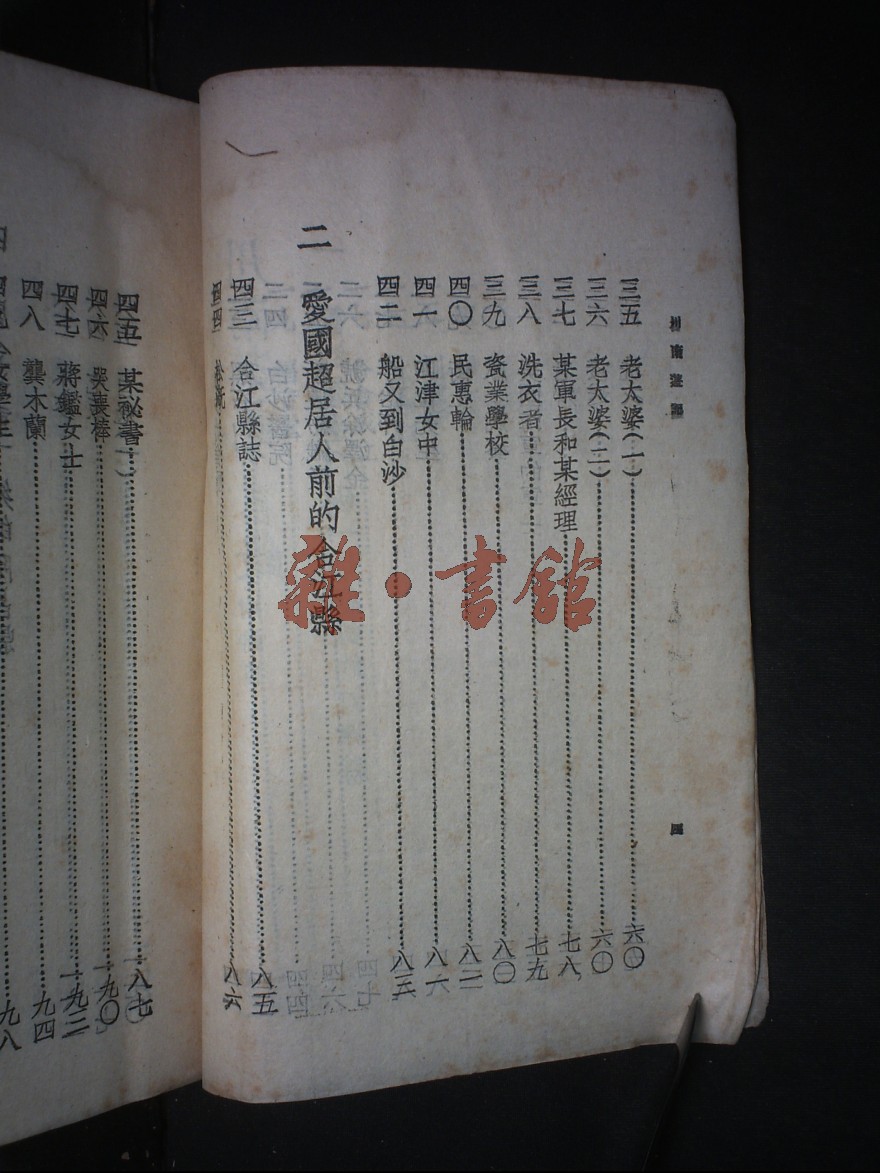 川南遊記
四
三五 老太婆(一) 六〇
三六 老太婆(二) 六〇
三七 某軍長和某經理 七八
三八 洗衣者 七九
三九 瓷業學校 八〇
四〇 民惠輪 八二
四一 江津女中 八六
四二 船又到白沙 八五
二 愛國超居人前的合江縣
四三 合江縣誌 八五
四四 八六
四五 某祕書 八七
四六 哭喪棒 九〇
四七 蔣鑑女士 九二
四八 龔木蘭 九四
九八
雜·書館